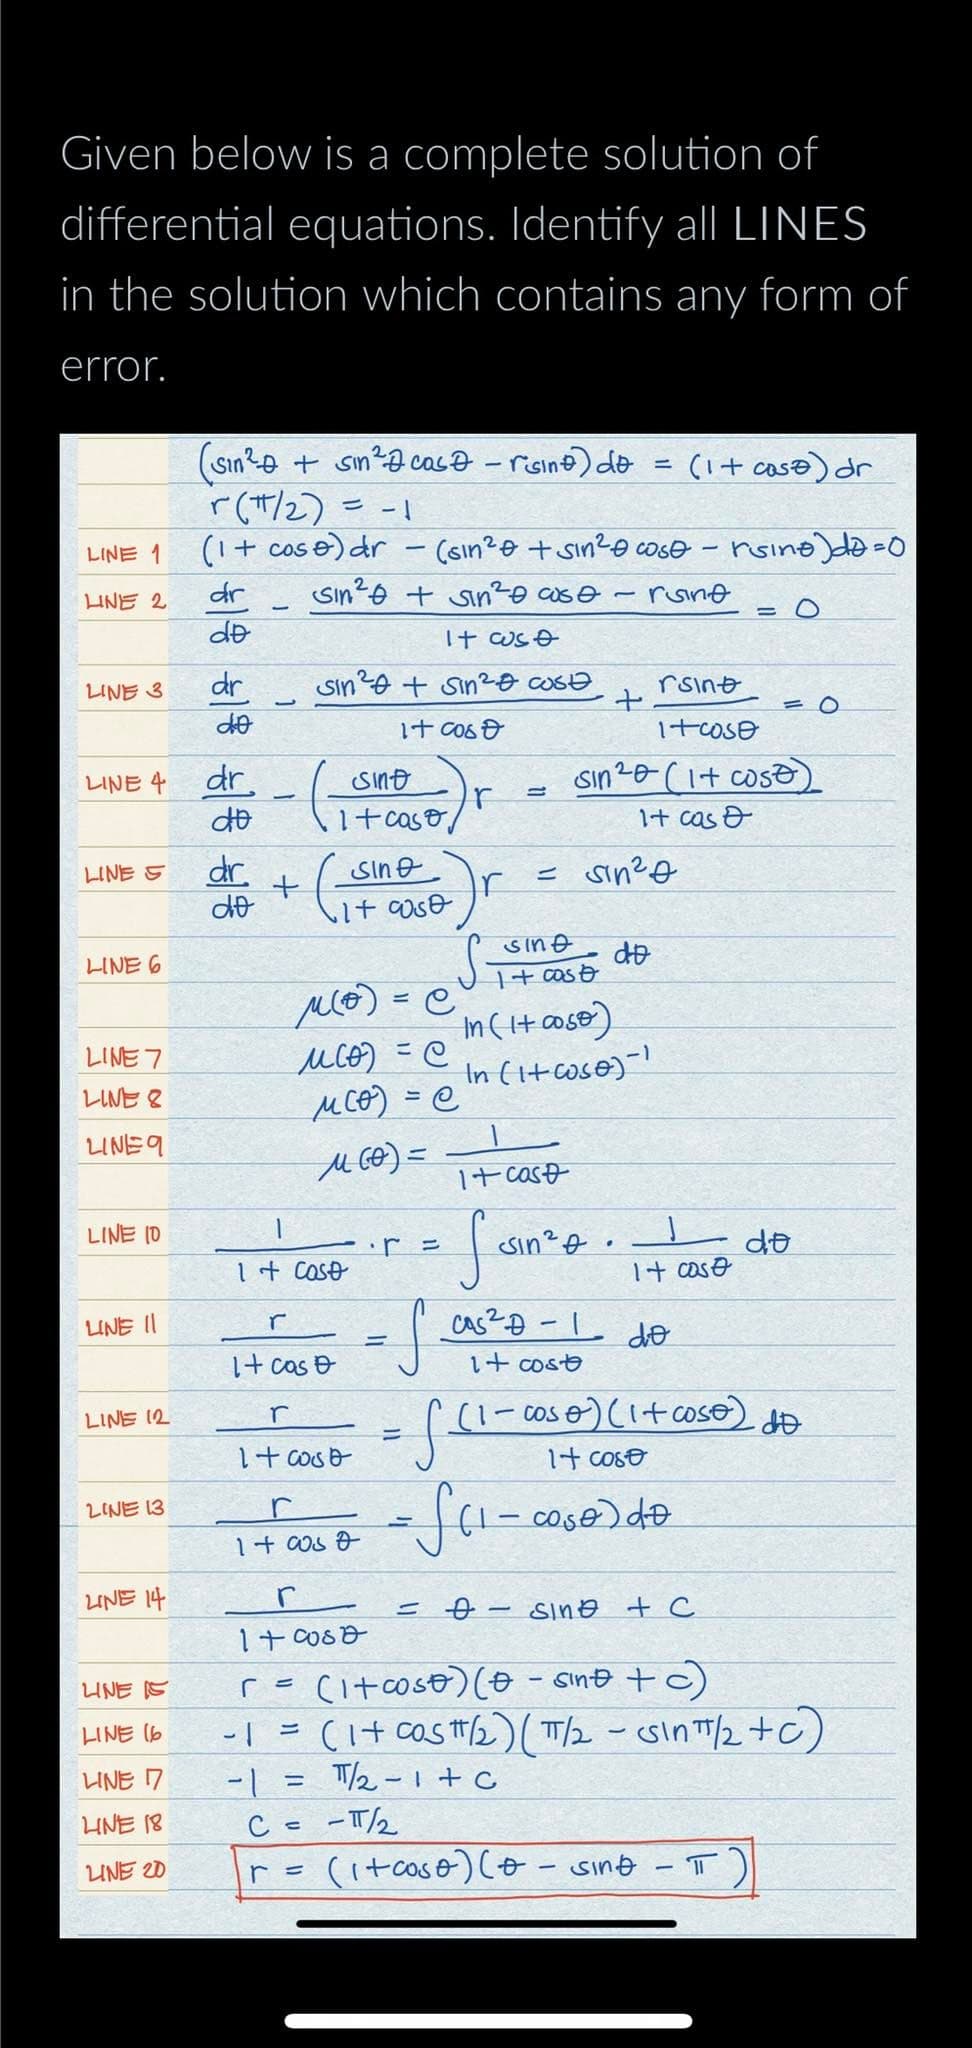 Given below is a complete solution of
differential equations. Identify all LINES
in the solution which contains any form of
error.
(sin²θ + sin²θ cosθ - rsinθ) dθ = (1 + cosθ) dr
r(π/2) = -1
LINE 1 (1 + cosθ) dr - (sin²θ + sin²θ cosθ - rsinθ) dθ = 0
LINE 2 dr/dθ - (sin²θ + sin²θ cosθ - rsinθ)/(1 + cosθ) = 0
LINE 3 dr/dθ - (sin²θ + sin²θ cosθ)/(1 + cosθ) + rsinθ/(1 + cosθ) = 0
LINE 4 dr/dθ - (sinθ/(1 + cosθ)) r = sin²θ (1 + cosθ)/(1 + cosθ)
LINE 5 dr/dθ + (sinθ/(1 + cosθ)) r = sin²θ
LINE 6 μ(θ) = e^(∫ sinθ/(1 + cosθ) dθ)
LINE 7 μ(θ) = e^(ln(1 + cosθ))
LINE 8 μ(θ) = e^(ln(1 + cosθ)⁻¹)
LINE 9 μ(θ) = 1/(1 + cosθ)
LINE 10 1/(1 + cosθ) · r = ∫ sin²θ · 1/(1 + cosθ) dθ
LINE 11 r/(1 + cosθ) = ∫ (cos²θ - 1)/(1 + cosθ) dθ
LINE 12 r/(1 + cosθ) = ∫ (1 - cosθ)(1 + cosθ)/(1 + cosθ) dθ
LINE 13 r/(1 + cosθ) = ∫ (1 - cosθ) dθ
LINE 14 r/(1 + cosθ) = θ - sinθ + C
LINE 15 r = (1 + cosθ)(θ - sinθ + C)
LINE 16 -1 = (1 + cosπ/2)(π/2 - sinπ/2 + C)
LINE 17 -1 = π/2 - 1 + C
LINE 18 C = -π/2
LINE 20 r = (1 + cosθ)(θ - sinθ - π)